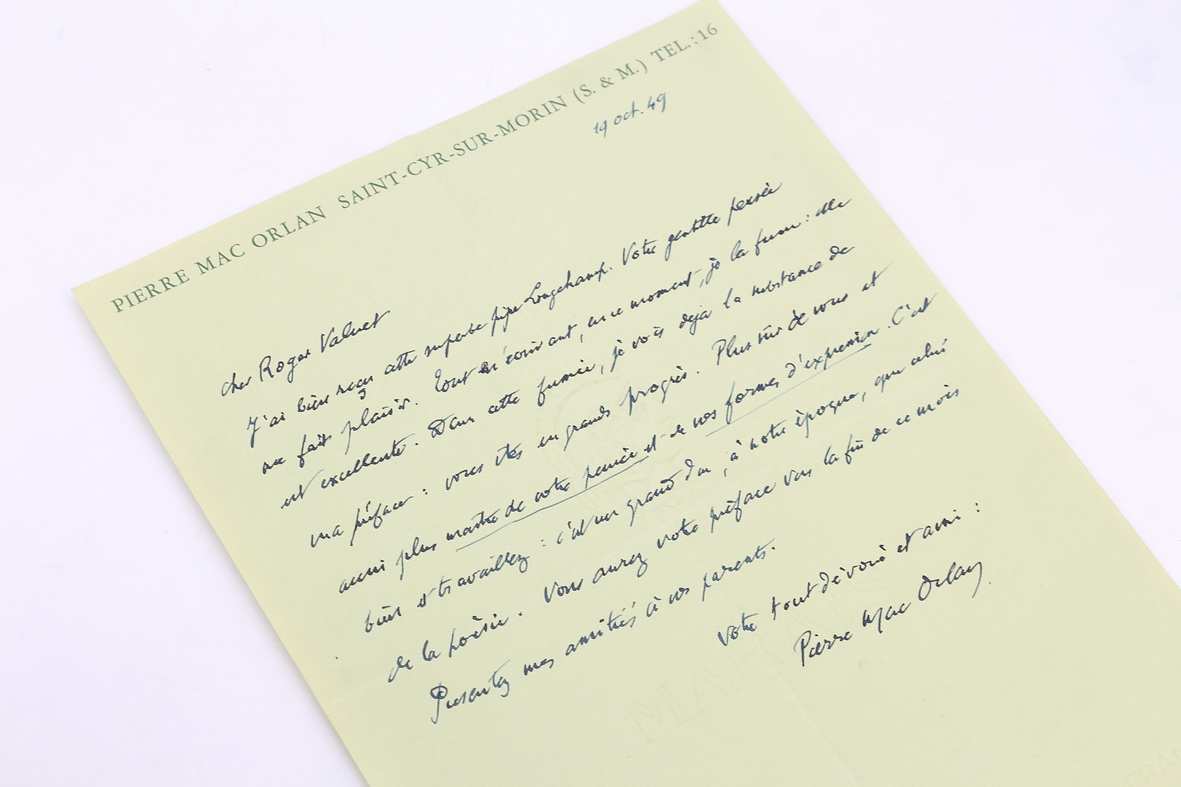 PIERRE MAC ORLAN SAINT-CYR-SUR-MORIN (S. & M.) TEL.: 16
19 oct. 49
cher Roger Valuet
J'ai bien reçu cette superbe pipe Longchamp. Votre gentille pensée
me fait plaisir. Tout en écrivant, en ce moment, je la fume : elle
est excellente. Dans cette fumée, je vois déjà la substance de
ma préface : vous êtes en grands progrès. Plus sûr de vous et
aussi plus maître de votre pensée et de vos formes d'expression. C'est
bien et travaillez : c'est un grand don, à notre époque, que celui
de la poésie. Vous aurez votre préface vers la fin de ce mois
Presentez mes amitiés à vos parents.
votre tout dévoué et ami :
Pierre Mac Orlan